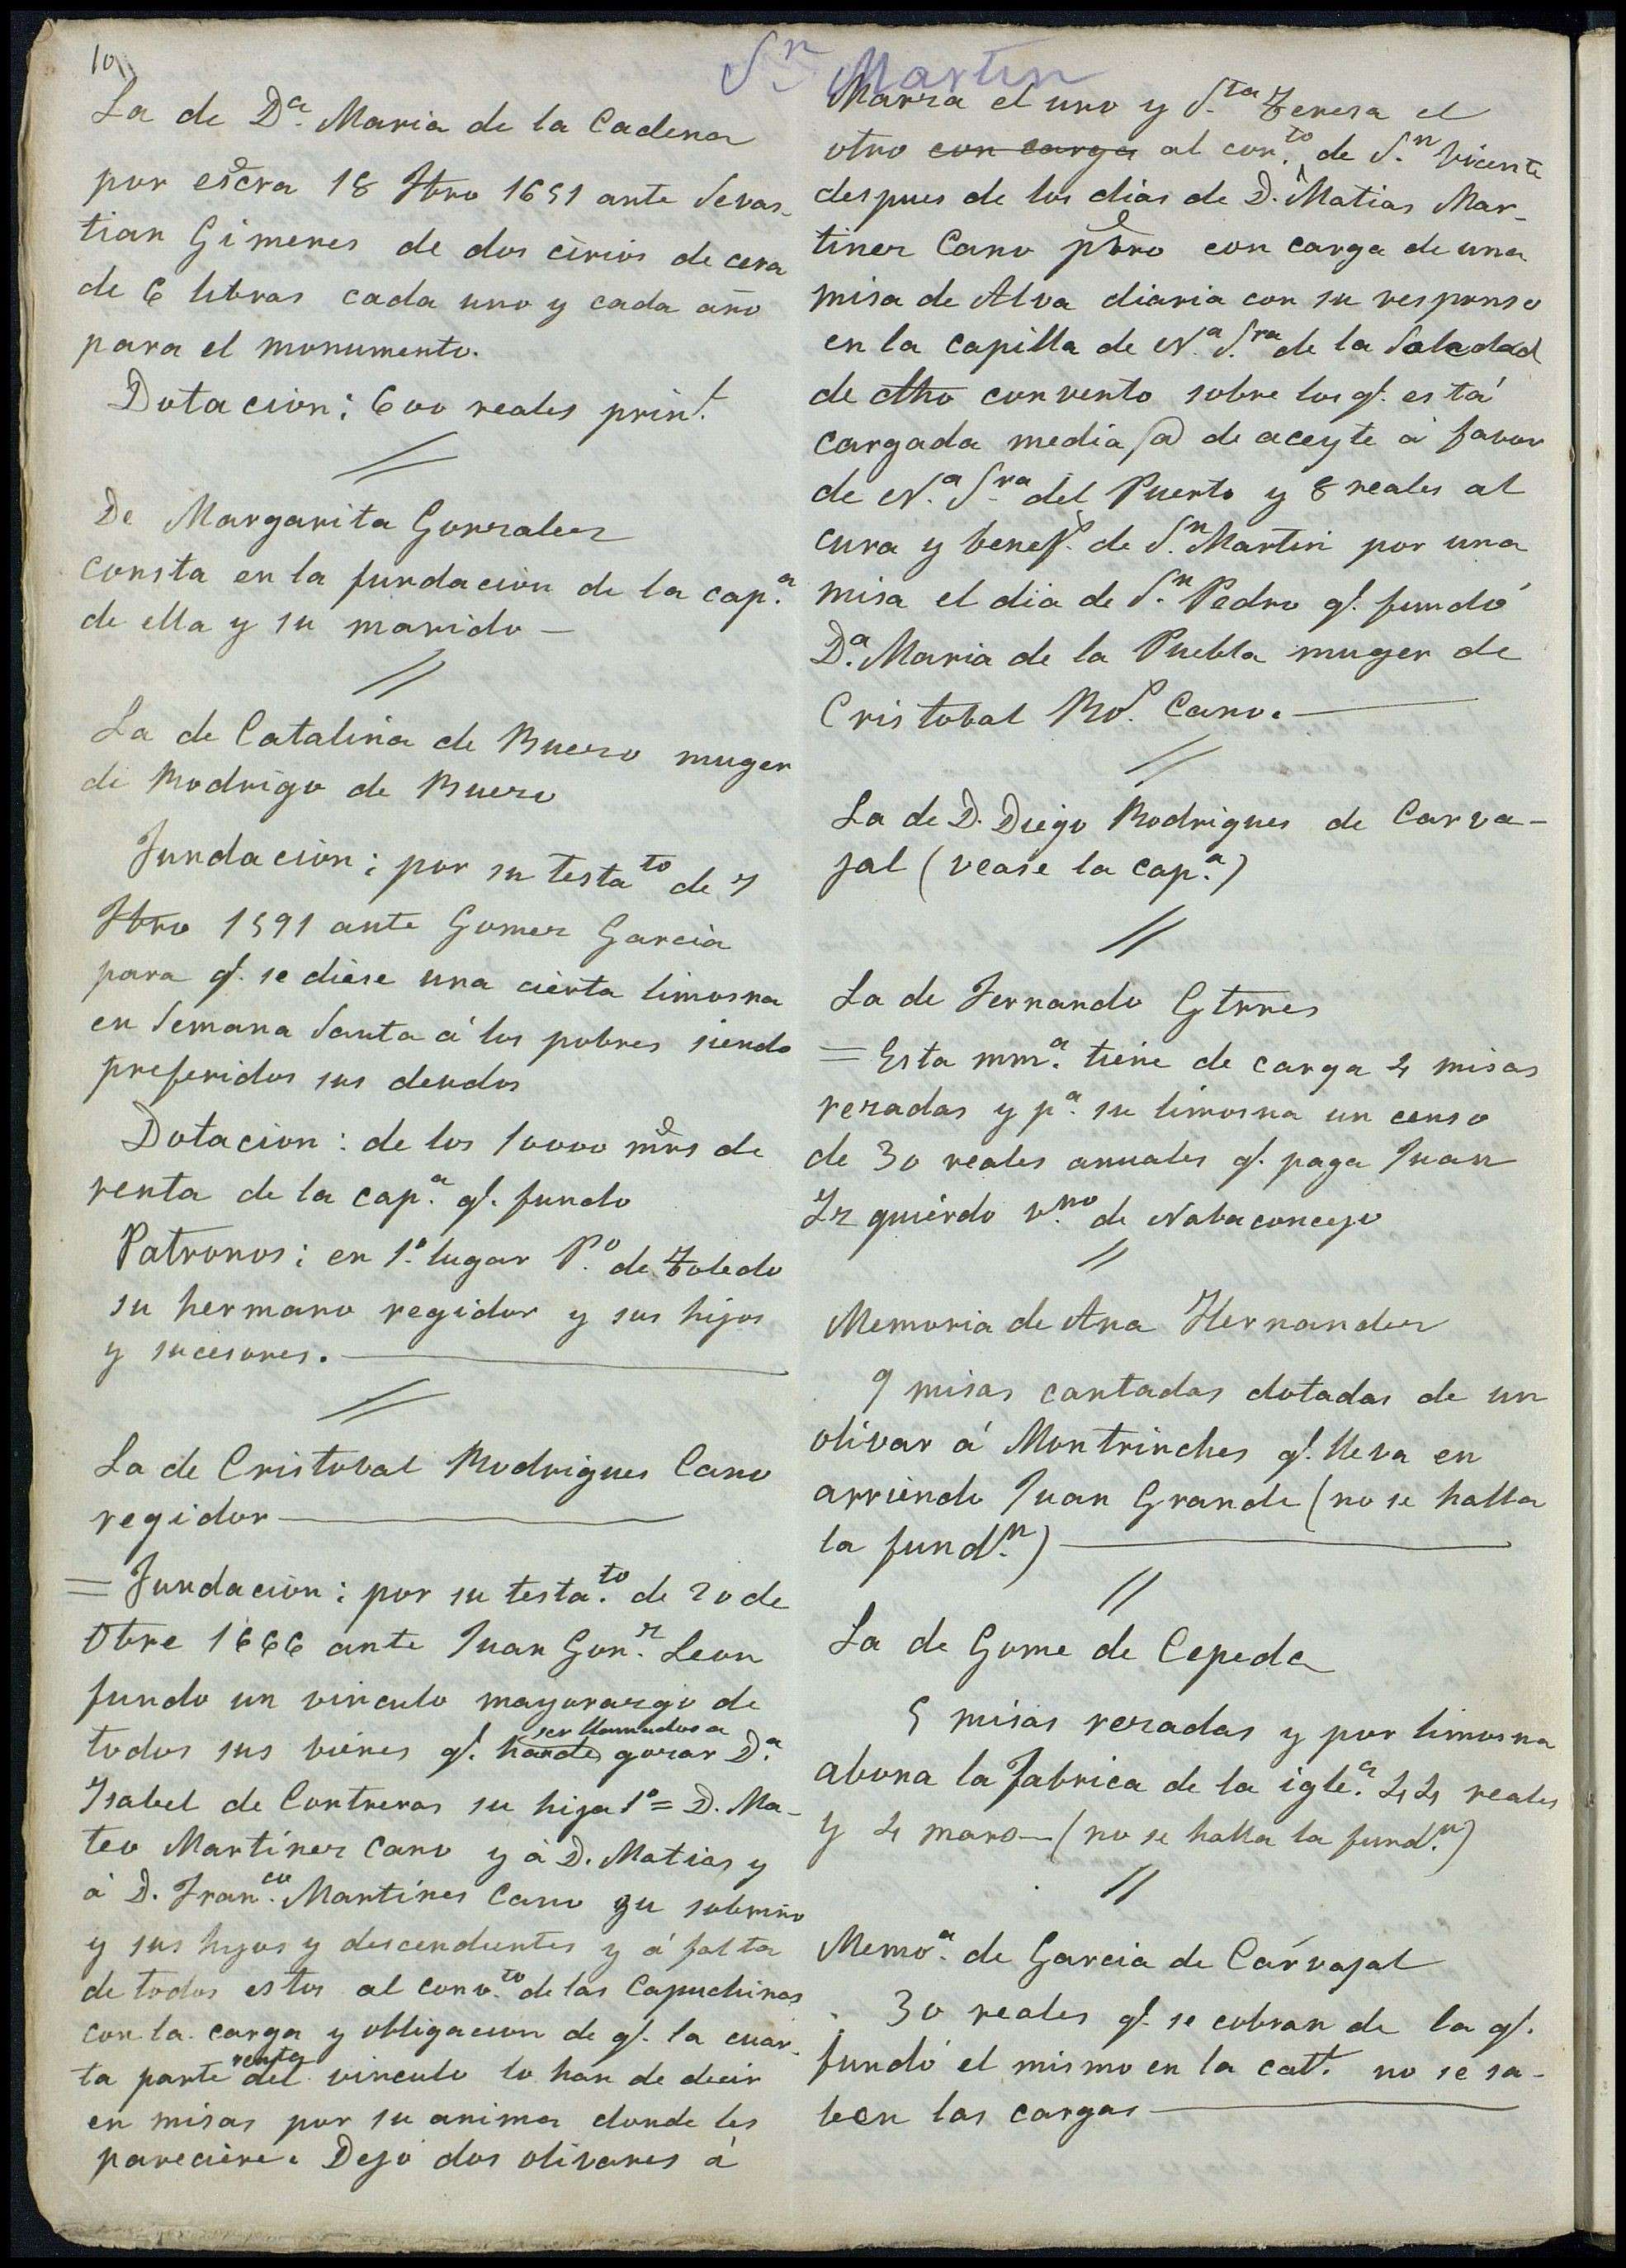 10
Sn. Martin
La de Da. Maria de la Cadena
por escra 18 Fbro 1651 ante Sevas-
tian Gimenes de dos cirios de cera
de 6 libras cada uno y cada año
para el monumento.
Dotacion: 600 reales prinl.
De Margarita Gonzalez
consta en la fundacion de la cap.a
de ella y su marido —
La de Catalina de Buezo muger
de Rodrigo de Buezo
Fundacion: por su testato de 7
Fbro 1591 ante Gomez Garcia
para q. se diese una cierta limosna
en Semana Santa á los pobres siendo
preferidos sus deudos
Dotacion: de los 10000 mrs de
renta de la cap.a q. fundo
Patronos: en 1.º lugar P.º de Toledo
su hermano regidor y sus hijos
y sucesores.
La de Cristobal Rodrigues Cano
regidor
= Fundacion: por su testa.to de 20 de
Obre 1666 ante Juan Gon.z Leon
fundo un vinculo mayorazgo de
ser llamados a
todos sus vienes q. gozar D.a
Isabel de Contreras su hija 1º = D. Ma-
teo Martinez Cano y á D. Matias y
á D. Fran.co Martines Cano su sobrino
y sus hijos y descendientes y á falta
de todos estos al conv.to de las Capuchinas
con la carga y obligacion de q. la cuar-
renta
ta parte del vinculo lo han de decir
en misas por su anima donde les
pareciere. Dejó dos olivares á
Marza el uno y S.ta Teresa el
otro con carga al con.to de S.n Vicente
despues de los dias de D. Matias Mar-
tinez Cano pbro con carga de una
misa de Alva diaria con su responso
en la capilla de N.a S.ra de la Soledad
de dho convento sobre los q. está
cargada media @ de aceyte á favor
de N.a S.ra del Puerto y 8 reales al
cura y benefº. de S.n Martin por una
misa el dia de S.n Pedro q. fundó
D.a Maria de la Puebla muger de
Cristobal Rº. Cano.
La de D. Diego Rodrigues de Carva-
jal (vease la cap.a)
La de Fernando Gtrres
= Esta mm.a tiene de carga 4 misas
rezadas y p.a su limosna un censo
de 30 reales anuales q. paga Juan
Izquierdo v.no de Nabaconcejo
Memoria de Ana Hernandez
9 misas cantadas dotadas de un
olivar á Montrinches q. lleva en
arriendo Juan Grande (no se halla
la fund.n)
La de Gome de Cepeda
5 misas rezadas y por limosna
abona la fabrica de la igle.a 44 reales
y 4 mars — (no se halla la fund.n)
Memo.a de Garcia de Carvajal
30 reales q. se cobran de la q.
fundó el mismo en la catl. no se sa-
ben las cargas